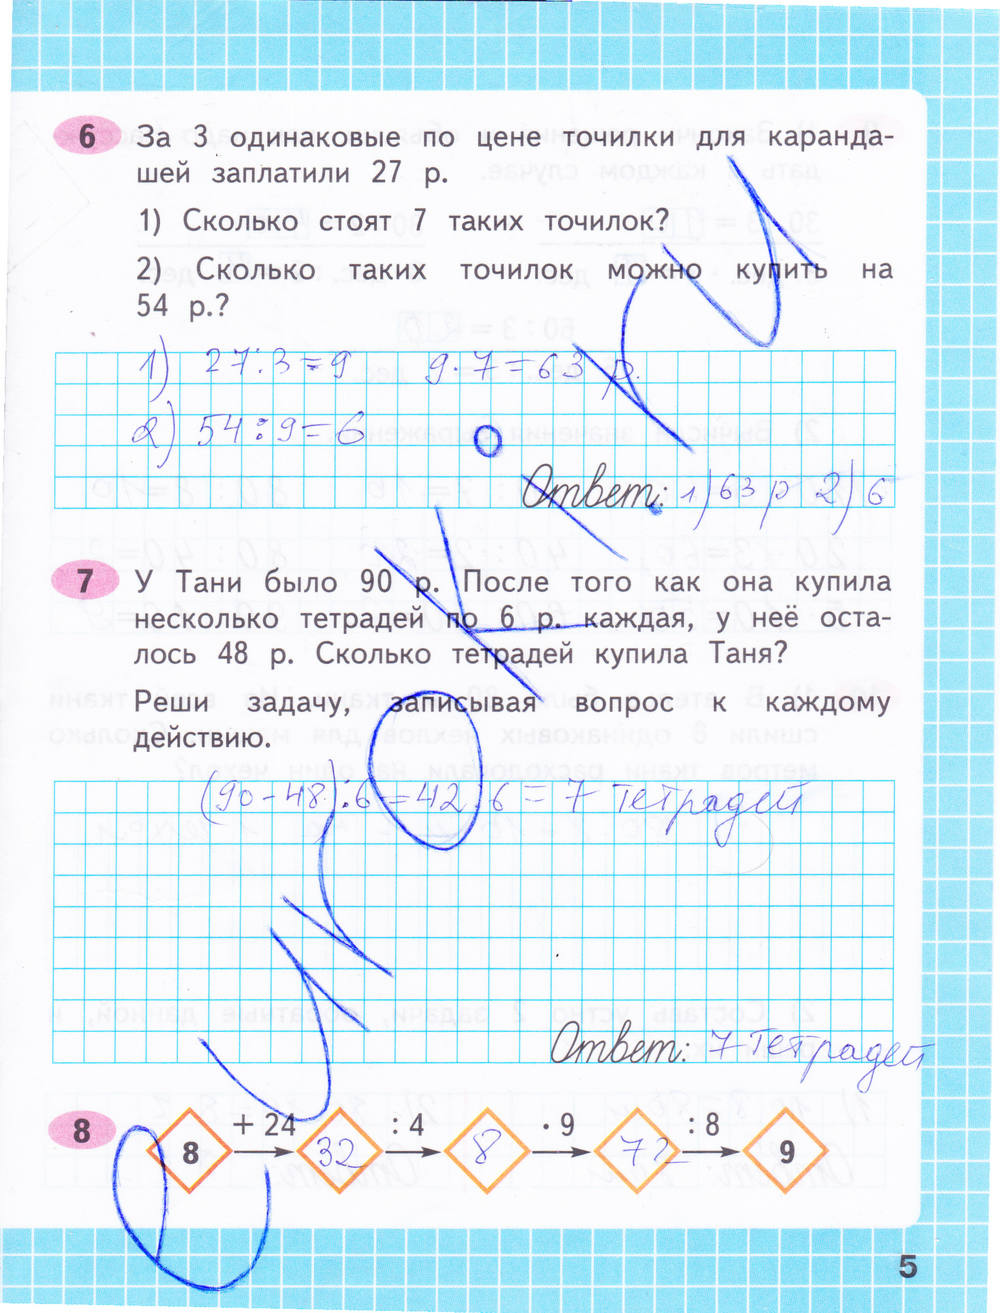 6 За 3 одинаковые по цене точилки для каранда-
шей заплатили 27 р.
1) Сколько стоят 7 таких точилок?
2) Сколько таких точилок можно купить на
54 р.?
1) 27:3=9 9·7=63 р.
2) 54:9=6
Ответ: 1) 63 р 2) 6
7 У Тани было 90 р. После того как она купила
несколько тетрадей по 6 р. каждая, у неё оста-
лось 48 р. Сколько тетрадей купила Таня?
Реши задачу, записывая вопрос к каждому
действию.
(90-48):6=42:6=7 тетрадей
Ответ: 7 тетрадей
8 8 +24 32 :4 8 ·9 72 :8 9
5